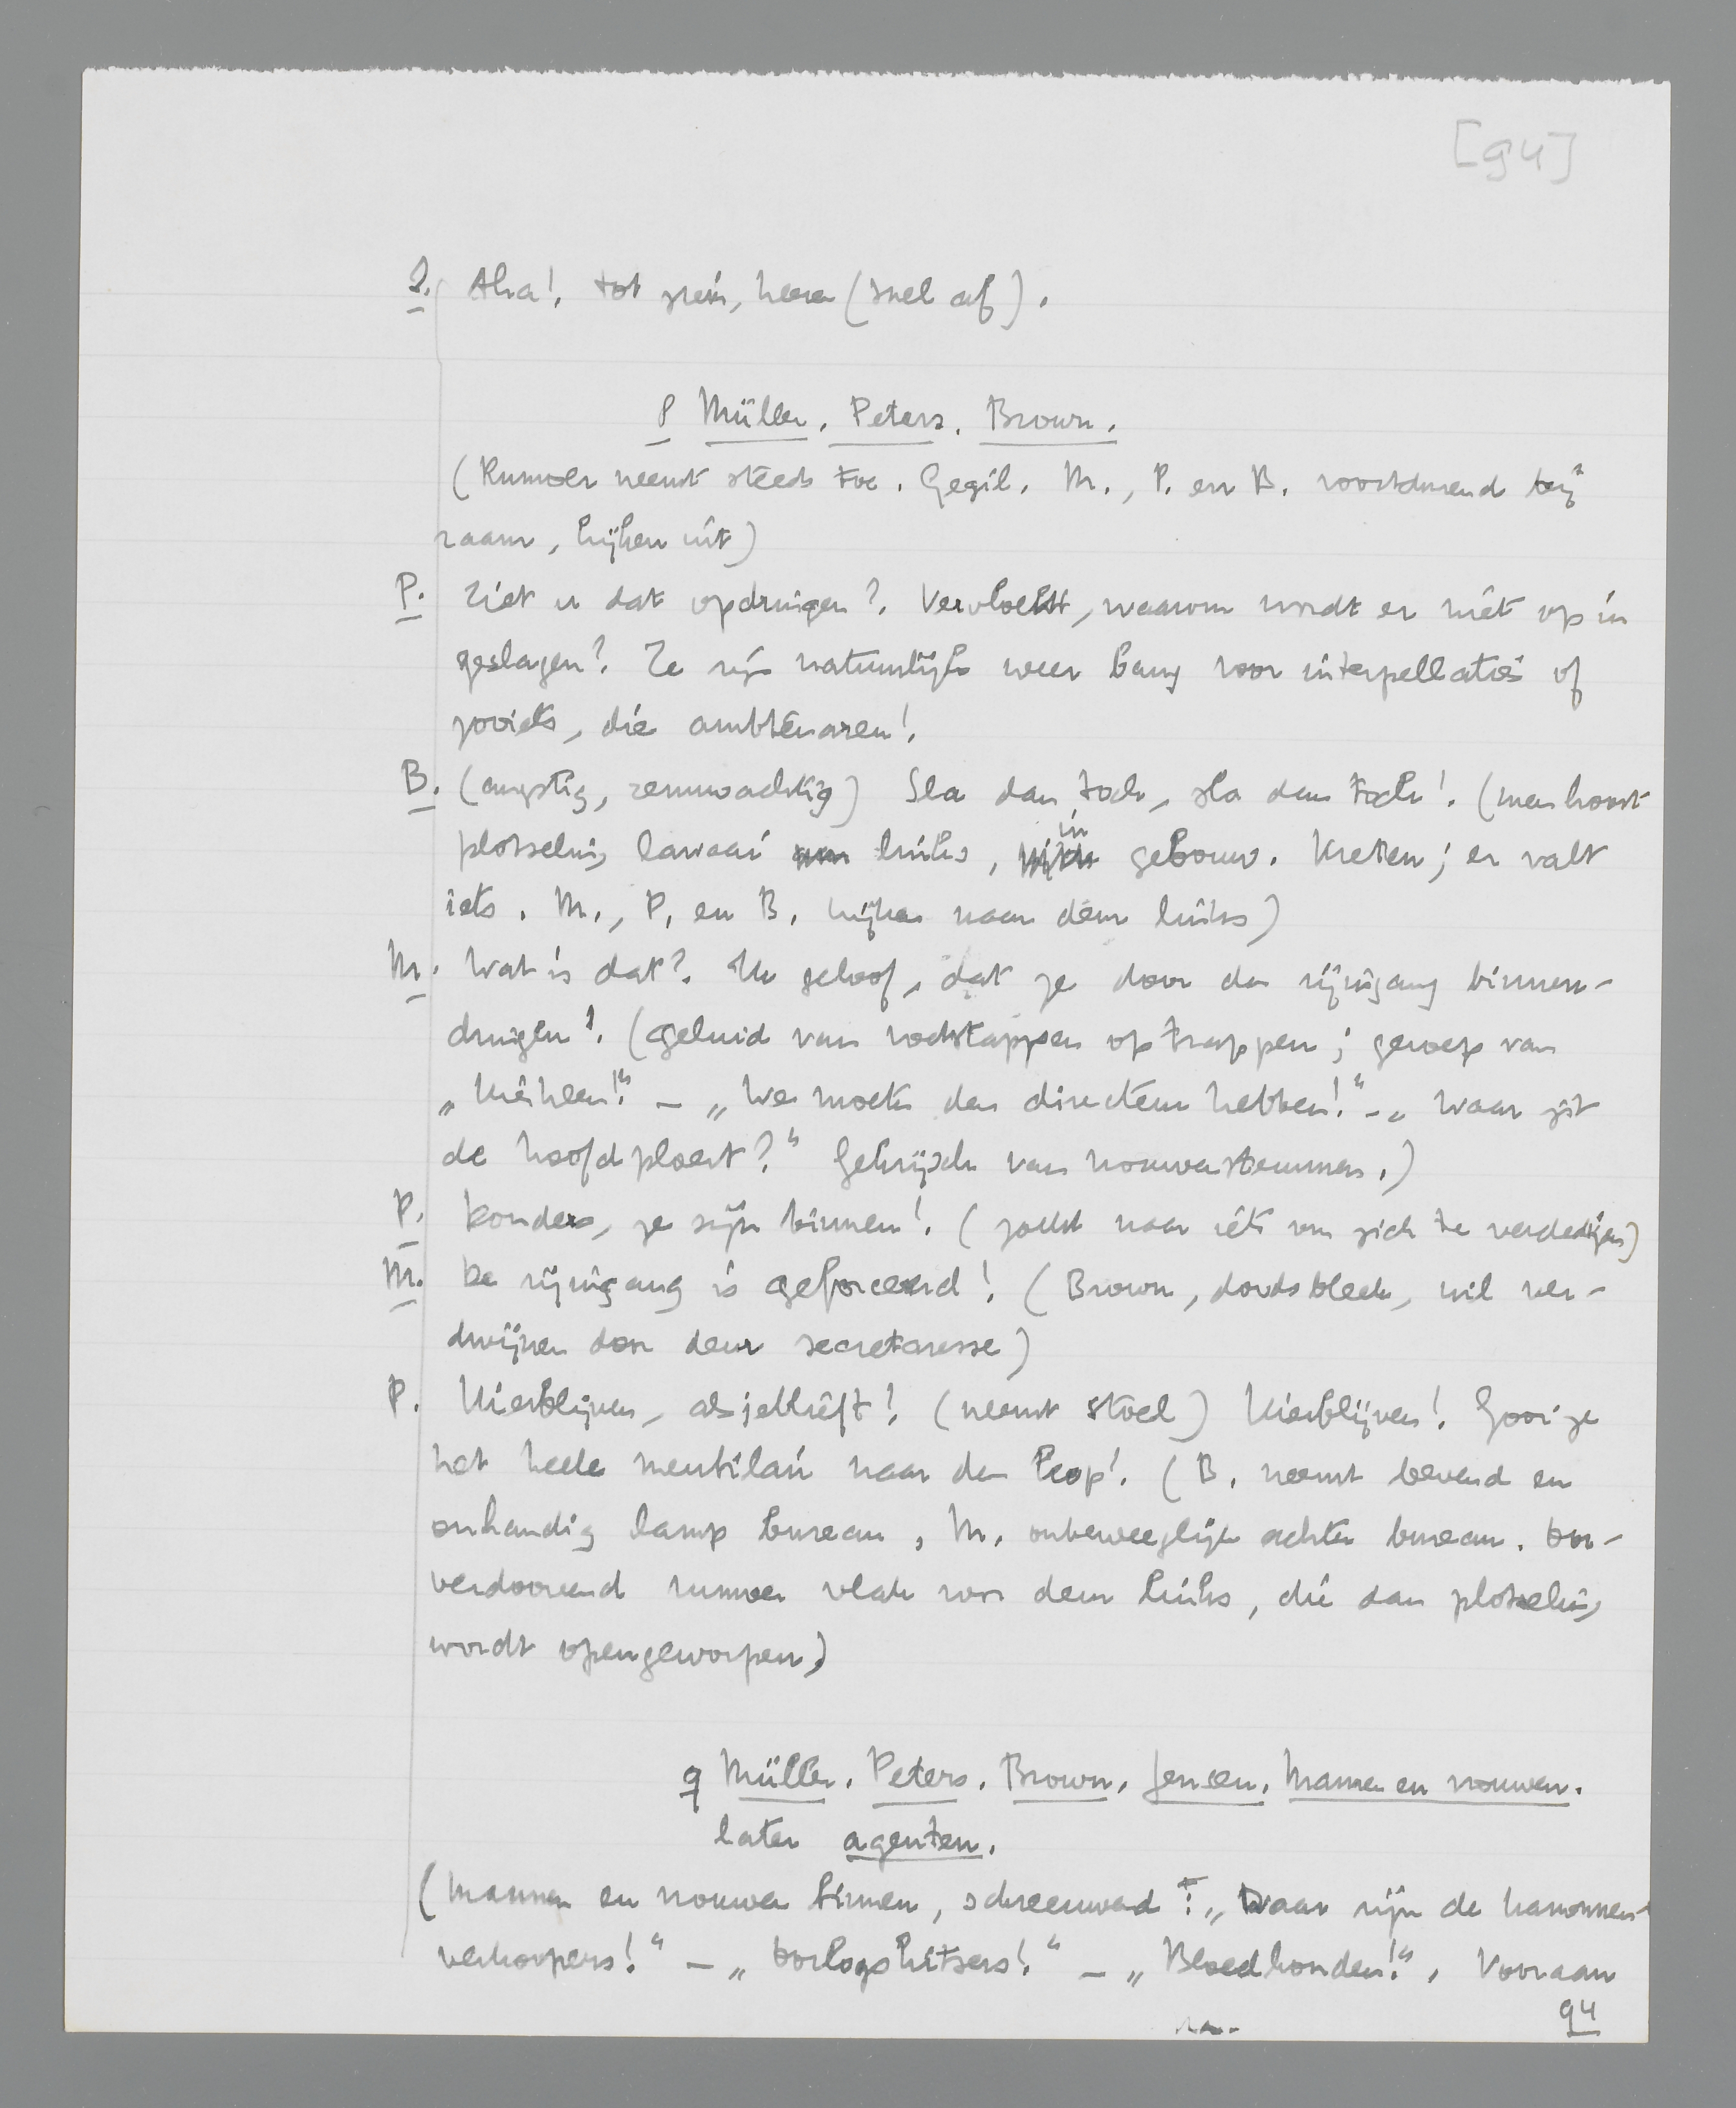 [94]
J. Aha! Tot ziens, heeren (snel af).
p Müller, Peters, Brown.
(Rumoer neemt steeds toe. Gegil. M., P. en B. voortdurend bij
raam, kijken uit)
P. Ziet u dat opdringen? Vervloekt, waarom wordt er niet op in
geslagen? Ze zijn natuurlijk weer bang voor interpellaties of
zooiets, die ambtenaren!
B. (angstig, zenuwachtig) Sla dan toch, sla dan toch! (men hoort
plotseling lawaai links, in gebouw. Kreten; er valt
iets. M., P. en B. kijken naar deur links)
M. Wat is dat? Ik geloof, dat ze door den zijingang binnen-
dringen! (geluid van voetstappen op trappen; geroep van
„Hierheen!" - „We moeten den directeur hebben!" - „Waar zit
de hoofdploert?" Gekrijsch van vrouwenstemmen.)
P. Donders, ze zijn binnen! (zoekt naar iets om zich te verdedigen)
M. De zijingang is geforceerd! (Brown, doodsbleek, wil ver-
dwijnen door deur secretaresse)
P. Hierblijven, alsjeblieft! (neemt stoel) Hierblijven! Gooi ze
het heele meubilair naar den kop! (B. neemt bevend en
onhandig lamp bureau, M. onbeweeglijk achter bureau. Oor-
verdoovend rumoer vlak voor deur links, die dan plotseling
wordt opengeworpen)
q Müller, Peters, Brown, Jensen, Mannen en vrouwen.
later agenten.
(Mannen en vrouwen binnen, schreeuwend: „Waar zijn de kanonnen-
verkoopers!" - „Oorlogshitsers!" - „Bloedhonden!". Vooraan
94